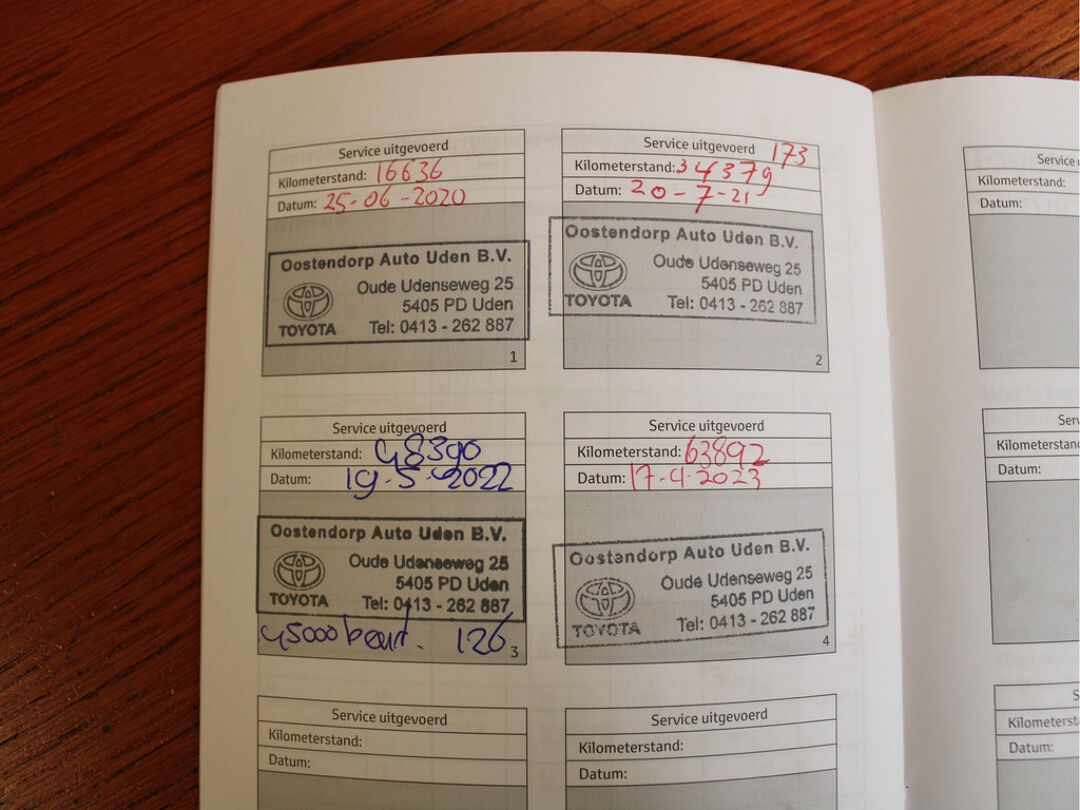 Service uitgevoerd 173
Kilometerstand: 16636
Kilometerstand: 34379
Datum: 25-06-2020
Datum: 20-7-21
Oostendorp Auto Uden B.V.
Oude Udenseweg 25
5405 PD Uden
TOYOTA Tel: 0413 - 262 887
1
Service uitgevoerd
Oostendorp Auto Uden B.V.
Oude Udenseweg 25
5405 PD Uden
TOYOTA Tel: 0413 - 262 887
2
Service uitgevoerd
Kilometerstand: 48390
Datum: 19-5-2022
Oostendorp Auto Uden B.V.
Oude Udenseweg 25
5405 PD Uden
TOYOTA Tel: 0413 - 262 887
45000 beurt. 126
3
Service uitgevoerd
Kilometerstand: 63892
Datum: 17-4-2023
Oostendorp Auto Uden B.V.
Oude Udenseweg 25
5405 PD Uden
TOYOTA Tel: 0413 - 262 887
4
Service uitgevoerd
Kilometerstand:
Datum:
Service uitgevoerd
Kilometerstand:
Datum:
Service
Kilometerstand:
Datum:
Kilometerstand
Datum:
Kilometersta
Datum: